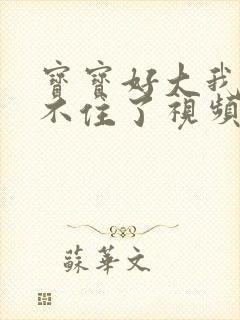 寶寶好大我
不住了視頻
蘇華文